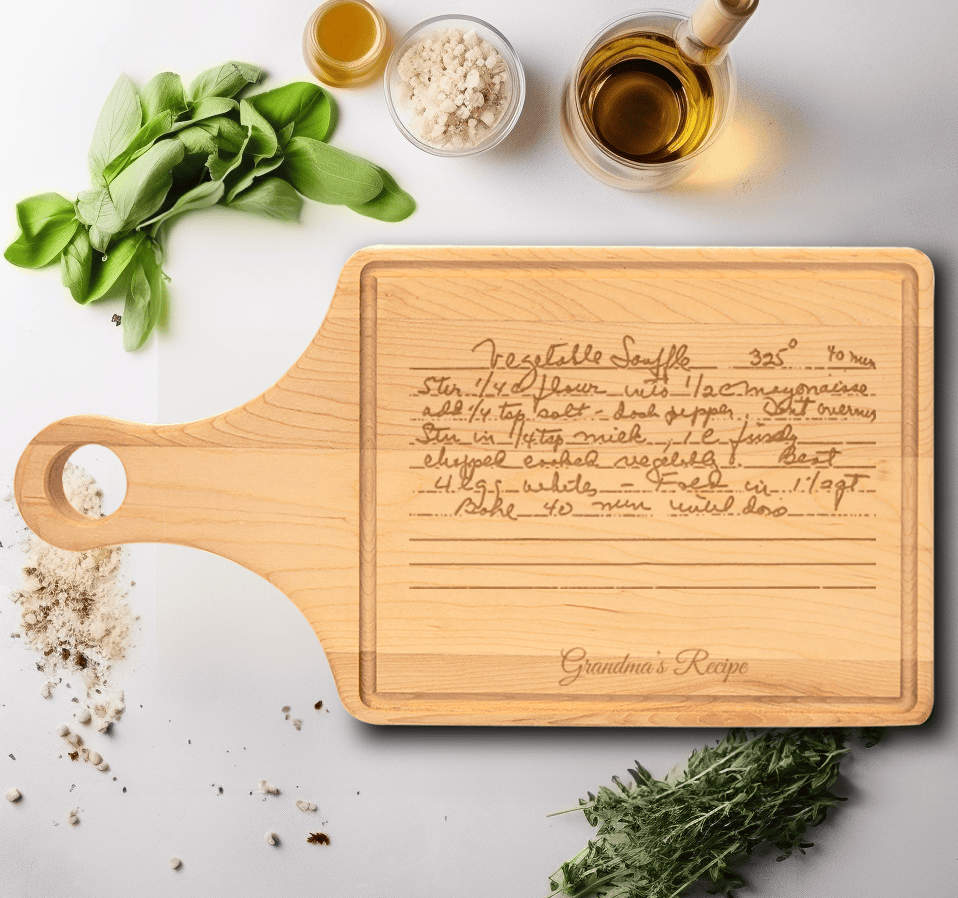 Vegetable Souffle 325° 40 min
Stir 1/4 c flour into 1/2 c mayonaise
add 1/4 tsp salt - dash pepper. Don't overmix
Stir in 1/4 tsp milk, 1 c finely
chopped cooked vegetable. Beat
4 egg whites - Fold in 1 1/2 qt
Bake 40 min until
Grandma's Recipe